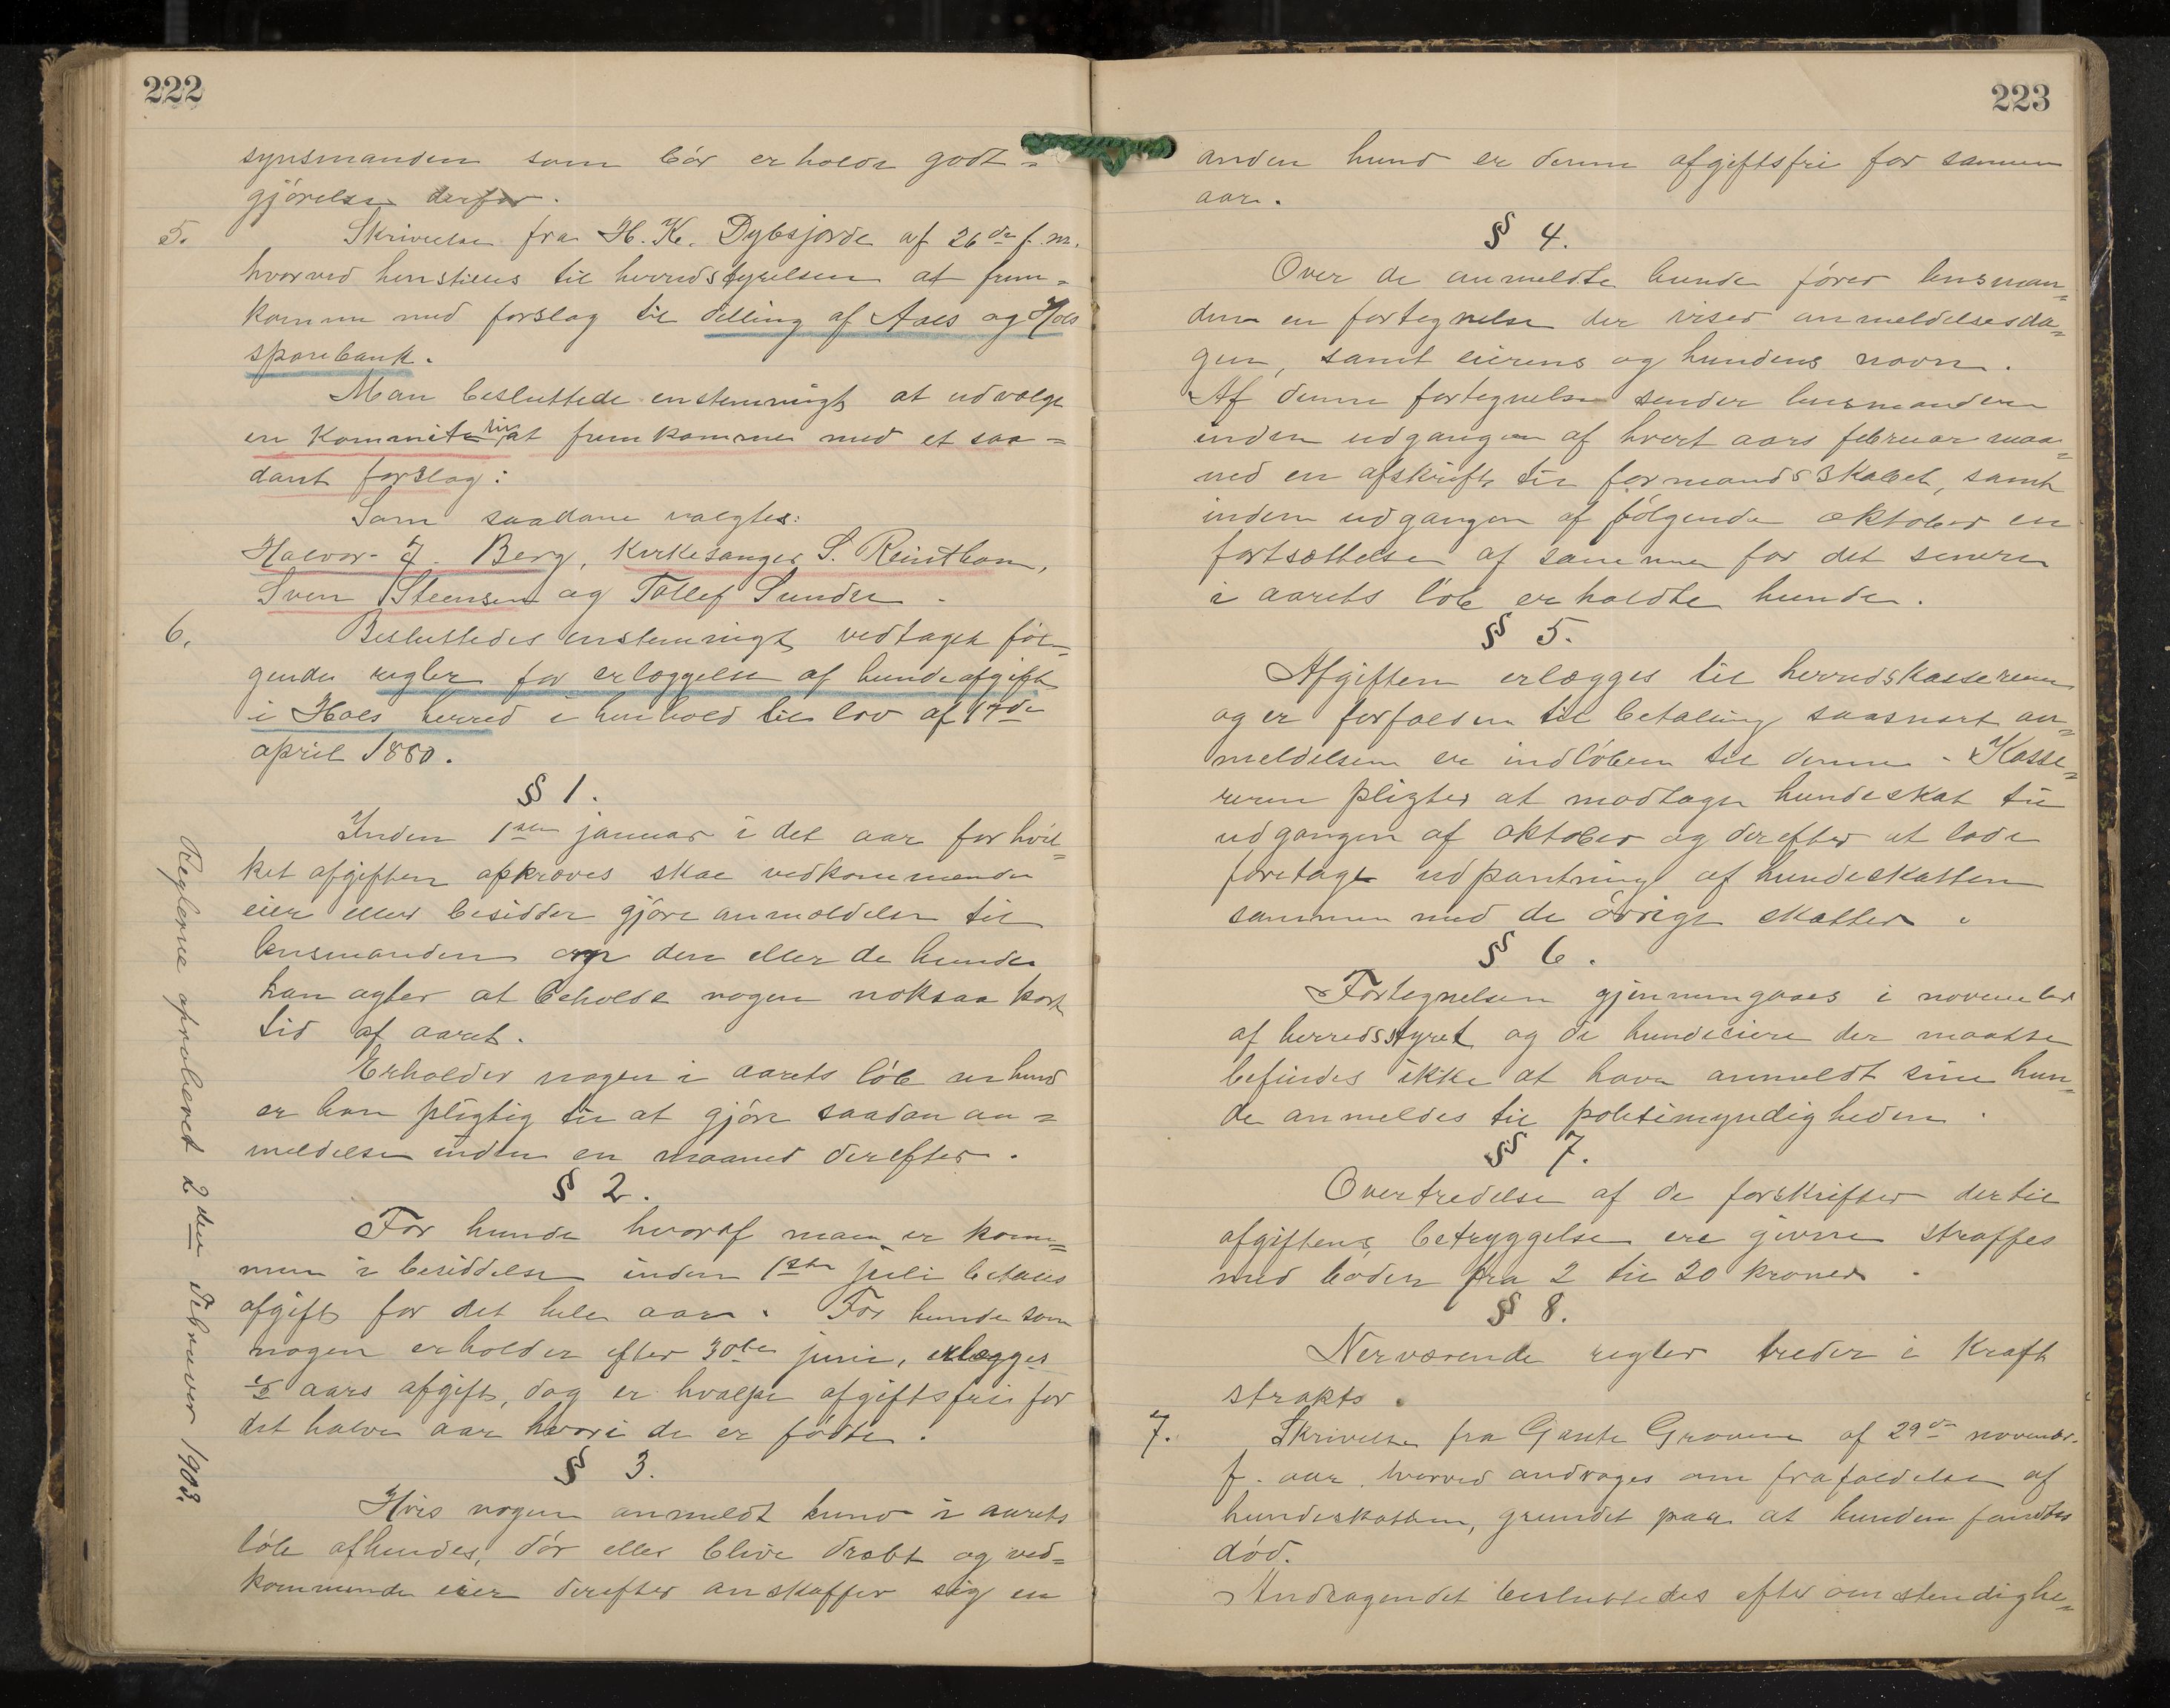 222
synsmanden som bør erholde godt-
gjørelse derfor.
5. Skrivelse fra H. K. Dybsjorde af 26de f. m.
hvorved henstilles til herredsstyrelsen at frem-
komme med forslag til deling af Aals og Hols
sparebank.
Man besluttede enstemmigt at udvælge
en Kommite til at fremkomme med et saa-
dant forslag:
Som saadane valgtes:
Halvor J. Berg, Kirkesanger S. Reinthon,
Sven Steensen og Tollef Sunder.
6. Besluttedes enstemmigt vedtaget føl-
gende regler for erlæggelse af hundeafgift
i Hols herred i henhold til lov af 17de
april 1880.
§ 1.
Inden 1ste januar i det aar for hvil-
ket afgiften opkræves skal vedkommende
eier eller besidder gjøre anmeldelse til
lensmanden om den eller de hunde
han agter at beholde nogen noksaa kort
tid af aaret.
Erholder nogen i aarets løb en hund
er han pligtig til at gjøre saadan an-
meldelse inden en maaned derefter.
§ 2.
For hunde hvoraf man er kom-
men i besiddelse inden 1ste juli betales
afgift for det hele aar. For hunde som
nogen erholder efter 30te juni, erlægges
1/2 aars afgift, dog er hvalpe afgiftsfrie for
det halve aar hvori de er fødte.
§ 3.
Hvis nogen anmeldt hund i aarets
løb afhendes, dør eller blive dræbt og ved-
kommende eier derefter anskaffer sig en
Reglerne aproberet 2den Februar 1903.
223
anden hund er denne afgiftsfri for samme
aar.
§ 4.
Over de anmeldte hunde fører lensman-
den en fortegnelse der viser anmeldelsesda-
gen, samt eierens og hundens navn.
Af denne fortegnelse sender lensmanden
inden udgangen af hvert aars februar maa-
ned en afskrift til formandsskabet, samt
inden udgangen af følgende oktober en
fortsættelse af samme for det senere
i aarets løb erholdte hunde.
§ 5.
Afgiften erlægges til herredskassereren
og er forfalden til betaling saasnart an-
meldelsen er indløben til denne. Kasse-
reren pligter at modtage hundeskat til
udgangen af oktober og derefter at lade
foretage udpantning af hundeskatten
sammen med de øvrige skatter.
§ 6.
Fortegnelsen gjennemgaaes i november
af herredsstyret og de hundeeiere der maatte
befindes ikke at have anmeldt sine hun-
de anmeldes til politimyndigheden.
§ 7.
Overtredelse af de forskrifter der til
afgiftens betryggelse ere givne straffes
med bøder fra 2 til 20 kroner.
§ 8.
Nerværende regler treder i Kraft
strakts.
7. Skrivelse fra Gunte Groven af 29de novembr.
f. aar, hvorved andrages om frafaldelse af
hundeskatten, grundet paa at hunden fandtes
død.
Andragendet besluttedes efter omstendighe-